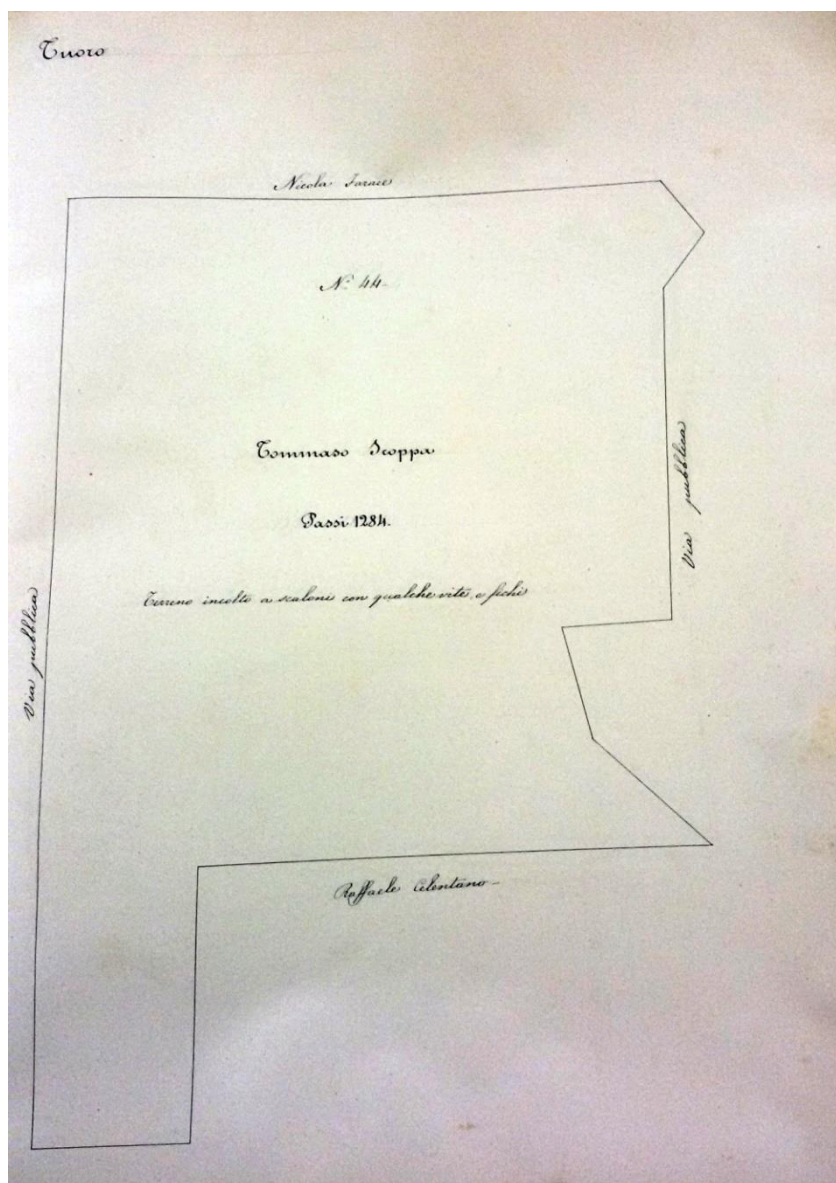 Tuoro
Nicola Farace
N.º 44
Tommaso Scoppa
Passi 1284.
Terreno incolto a scaloni con qualche vite, e fichi
Via pubblica
Via pubblica
Raffaele Celentano